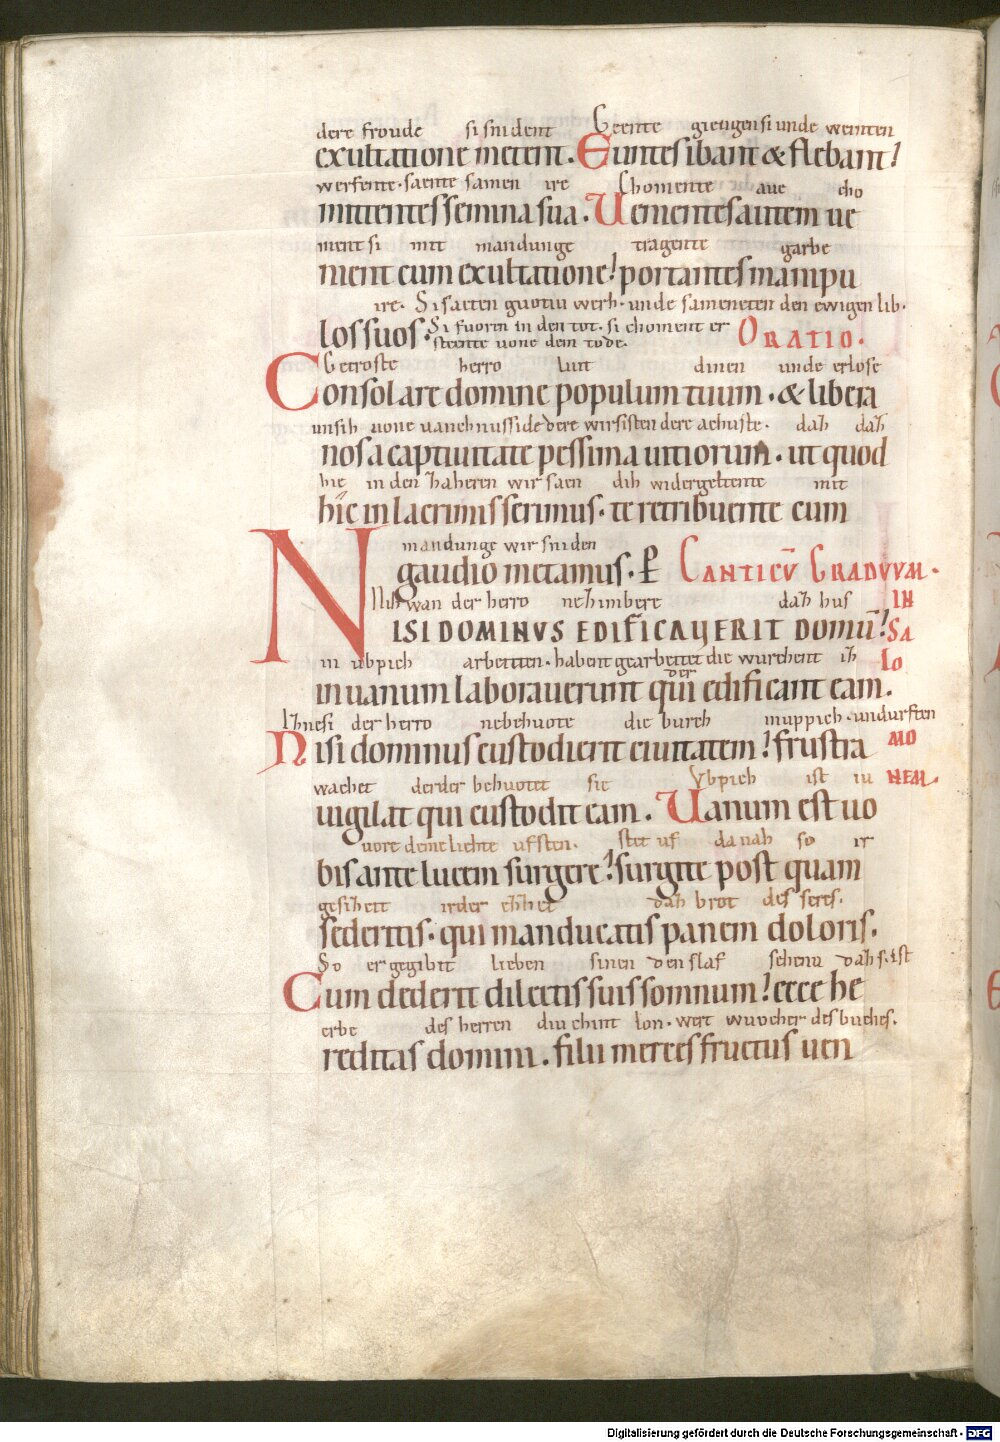 dere froude si snident Geente giengen si unde weinten
exultatione metent. Euntes ibant & flebant!
werfente. saente samen ire Chomente aue cho
mittentes semina sua. Uenientes autem ue
ment si mit mandunge tragente garbe
nient cum exultatione! portantes manipu
ire. Si saeten guotiu werh. unde sameneten den ewigen lib.
los suos. Si fuoren in den tot. si choment er ORATIO.
steente uone dem tode.
Getroste herro liut dinen unde erlose
Consolare domine populum tuum. & libera
unsih uone uanchnusside dere wirsisten dere achuste. dah dah
nos a captiuitate pessima uitiorum. ut quod
hie in den zaheren wir saen dih widergeltente mit
hic in lacrimis serimus. te retribuente cum
mandunge wir sniden
gaudio metamus. P CANTICU GRADUUM.
Nih wan der herro nezimbere dah hus IN
NISI DOMINUS EDIFICAUERIT DOMU! SA
in ubpich arbeiten. habent gearbeitet die wurchent ih LO
der
in uanum laborauerunt qui edificant eam.
Ihnesi der herro nebehuote die burch inuppich. undurften
Nisi dominus custodierit ciuitatem! frustra MO
wachet derder behuotet sie Ubpich ist iu NEM.
uigilat qui custodit eam. Uanum est uo
uore deme liehte ufsten. stet uf danah so ir
bis ante lucem surgere! surgite post quam
gesihett irder ezzet dah brot des seres.
sederitis. qui manducatis panem doloris.
So er gegibit lieben sinen den slaf sehenu dah sist
Cum dederit dilectis suis somnum! ecce he
erbe des herren diu chint lon. wert wuocher des buches.
reditas domini. filii merces fructus uen
Digitalisierung gefördert durch die Deutsche Forschungsgemeinschaft - DFG